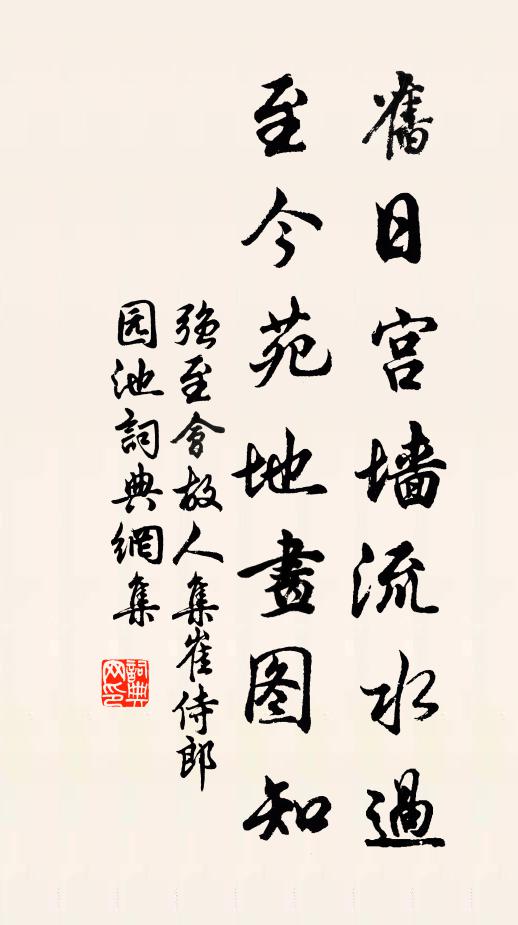 舊日宫墙流水過
至今苑地畫图知
强至會故人集崔侍郎
园池詞典網集
詞典网印